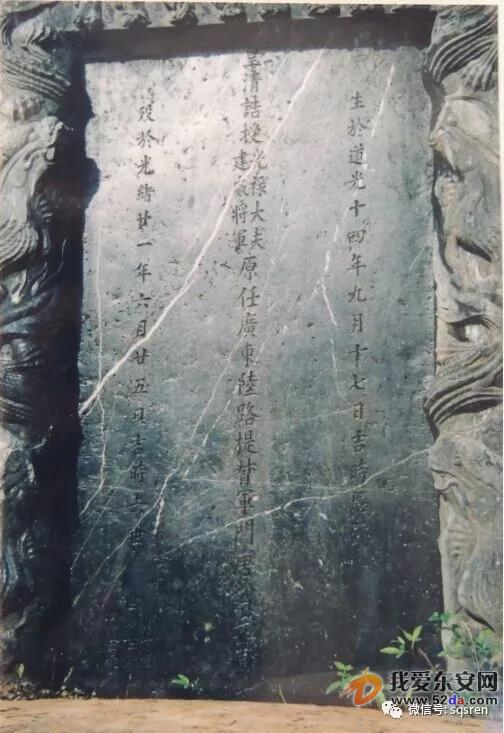 生於道光十四年九月十七日吉時
皇清誥授光祿大夫建威將軍原任廣東陸路提督軍門唐
歿於光緒廿一年六月廿五日吉時
我爱东安网
www.52da.com
微信号: sqsren